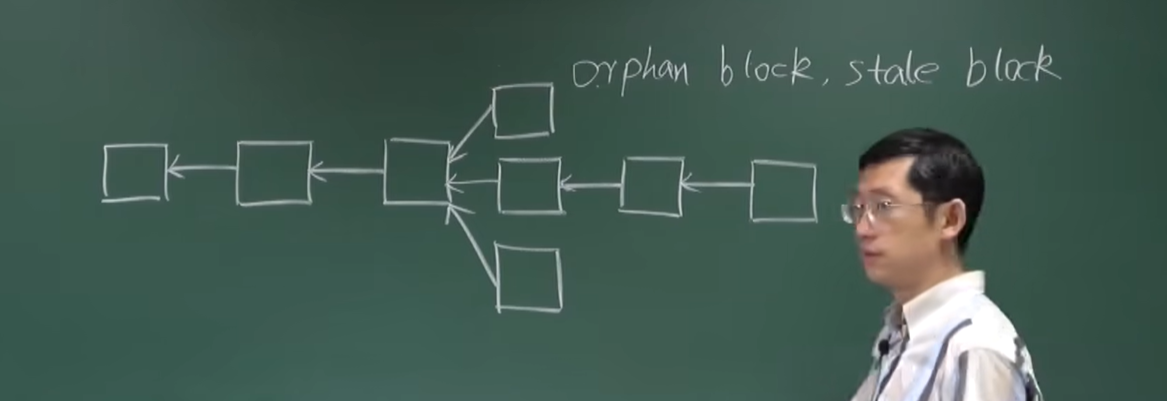 orphan block, stale block